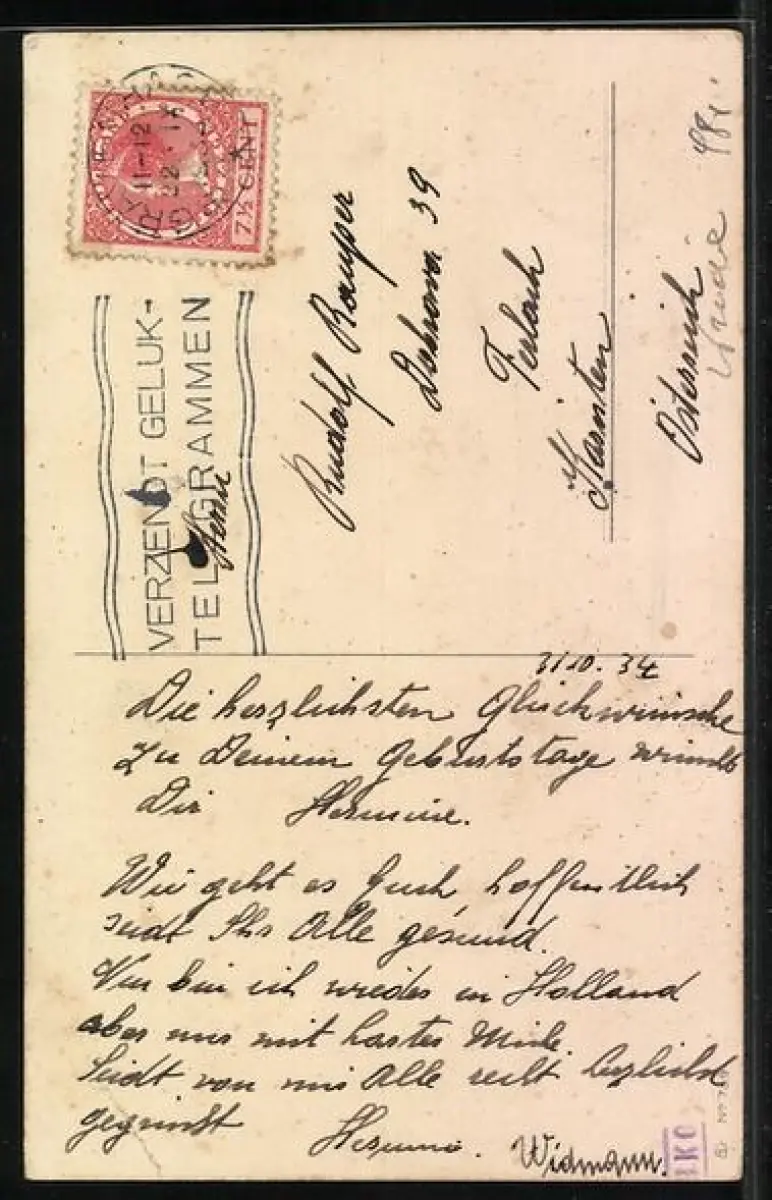 11-12
7½ CENT
VERZENDT GELUK-
TELEGRAMMEN
Herrn
Rudolf
39
Ferlach
Kärnten
Österreich
31 10. 34
Die herzlichsten Glückwünsche
zu Deinem Geburtstage wünscht
Dir Hermine.
Wie geht es Euch, hoffentlich
seidt Ihr Alle gesund.
Nun bin ich wieder in Holland
aber nur mit harter Mühe.
Seidt von mir Alle recht herzlichst
gegrüsst Hermine.
Widmann.